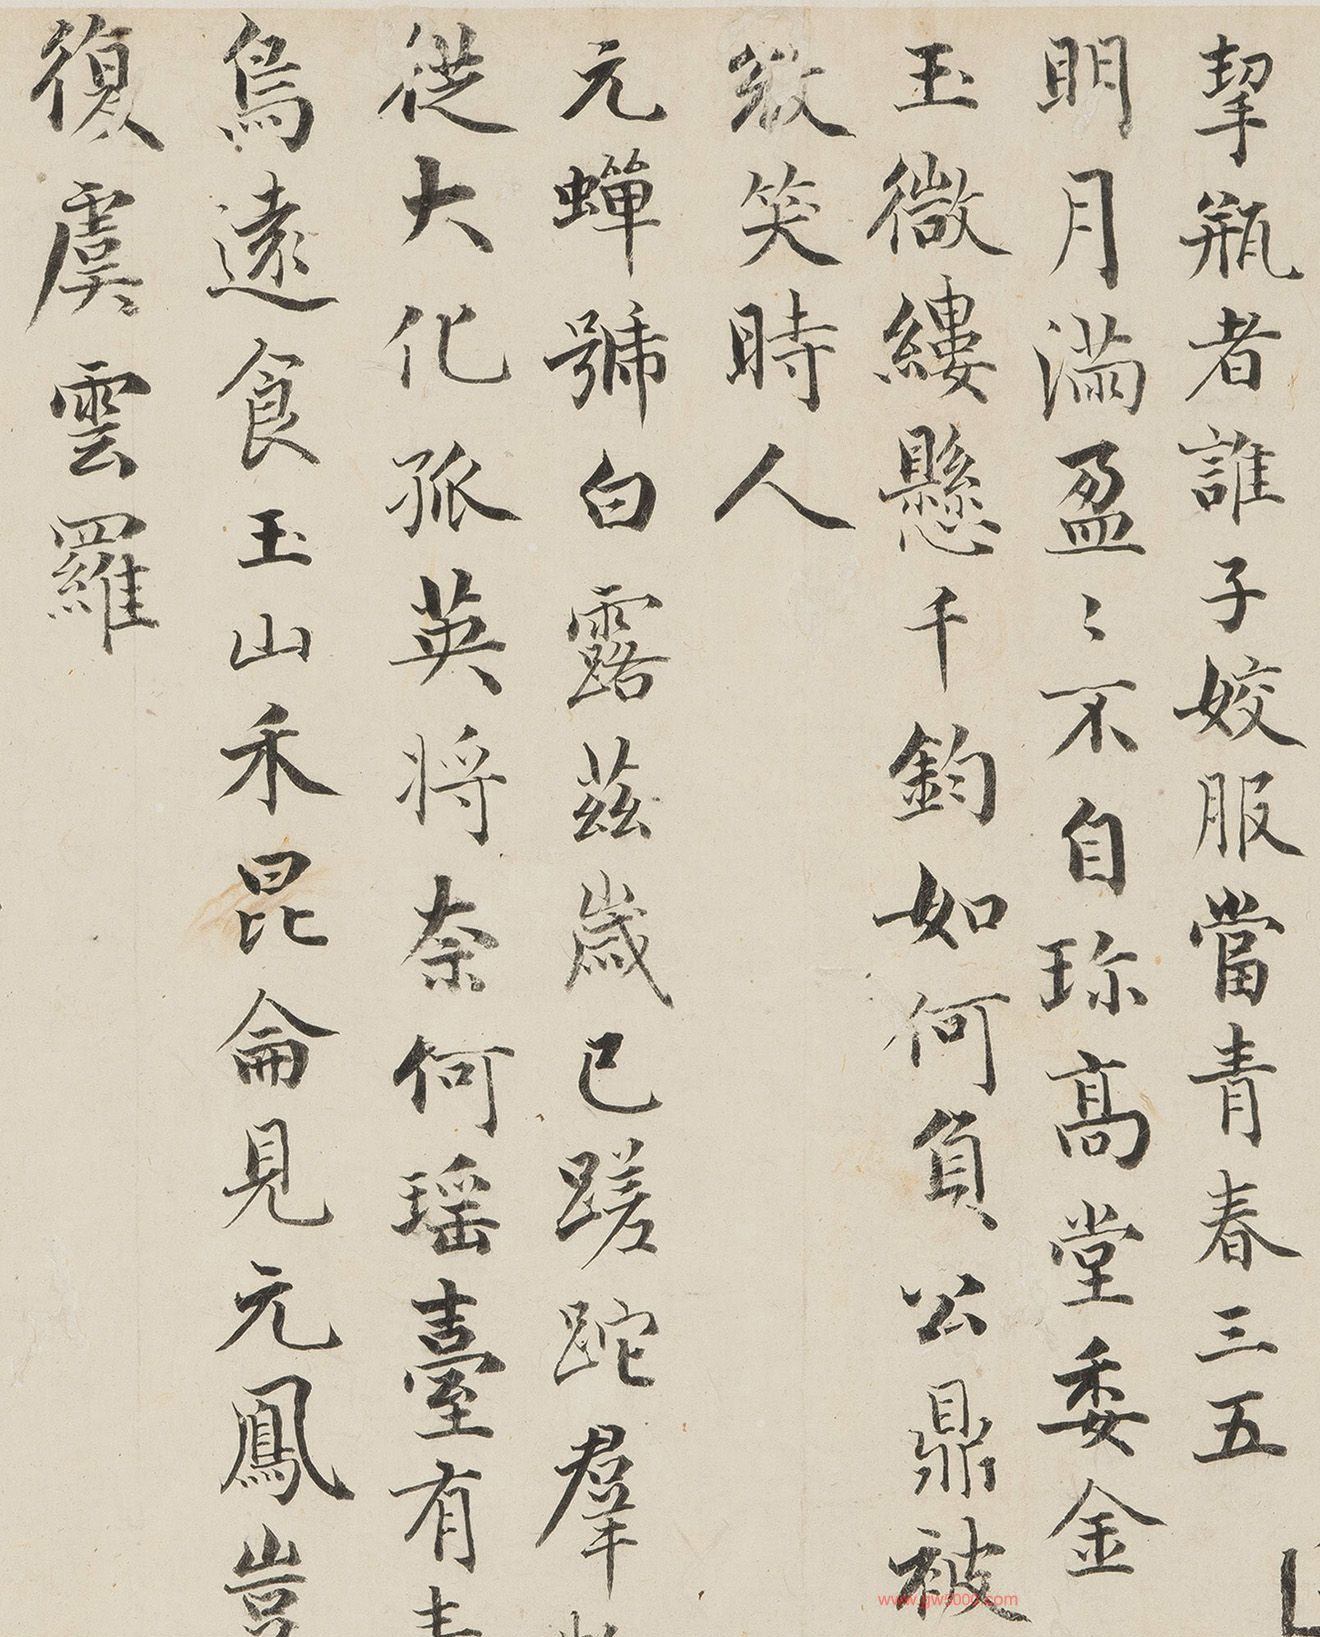 挈瓶者誰子姣服當青春三五
明月滿盈〻不自珎髙堂委金
玉微縷懸千鈞如何負公鼎被
敚笑時人
元蟬號白露茲歲已蹉跎羣
從大化孤英將奈何瑶臺有青
鳥遠食玉山禾昆侖見元鳳豈
復虞雲羅
www.gw5000.com